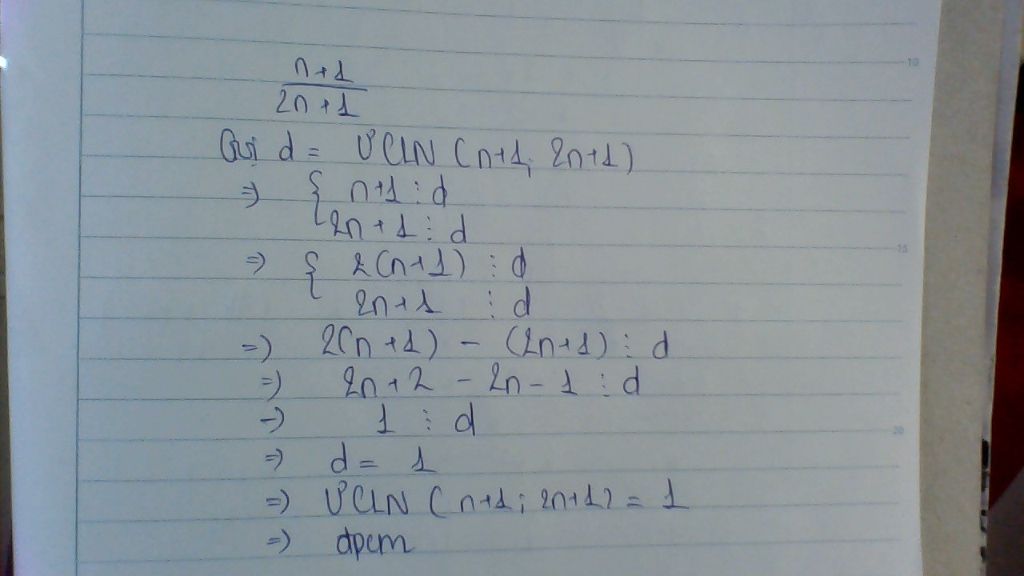 n+1
2n+1
Gọi d = ƯCLN (n+1; 2n+1)
=> { n+1 ⋮ d
2n+1 ⋮ d
=> { 2(n+1) ⋮ d
2n+1 ⋮ d
=> 2(n+1) - (2n+1) ⋮ d
=> 2n+2 - 2n-1 ⋮ d
=> 1 ⋮ d
=> d = 1
=> ƯCLN (n+1; 2n+1) = 1
=> dpcm
10
15
20